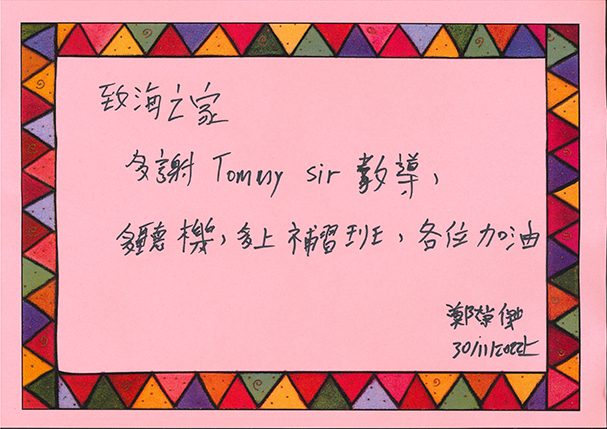 致海之家
多謝 Tommy sir 教導，
多聽機，多上補習班，各位加油
鄭榮
30/11/2022上